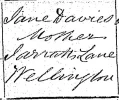 Jane Davies
Mother
Jarratts Lane
Wellington